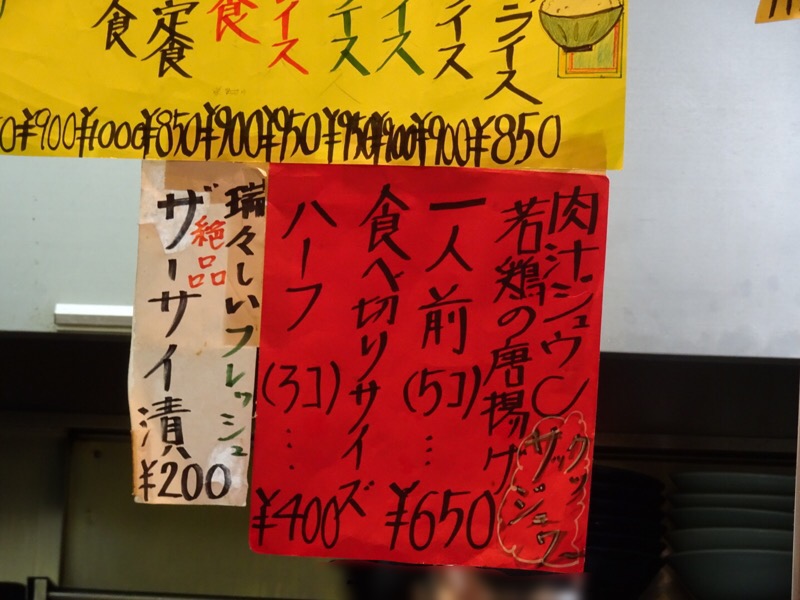 ライス
イス
イス
イス
イス
食
定食
食
¥850
¥900
¥900
¥950
¥950
¥900
¥850
¥1000
¥900
肉汁ジュウ〜
若鶏の唐揚げ
サックッ
ジュワー
一人前(5コ)…¥650
食べ切りサイズ
ハーフ(3コ)…¥400
瑞々しいフレッシュ
絶品
ザーサイ漬
¥200